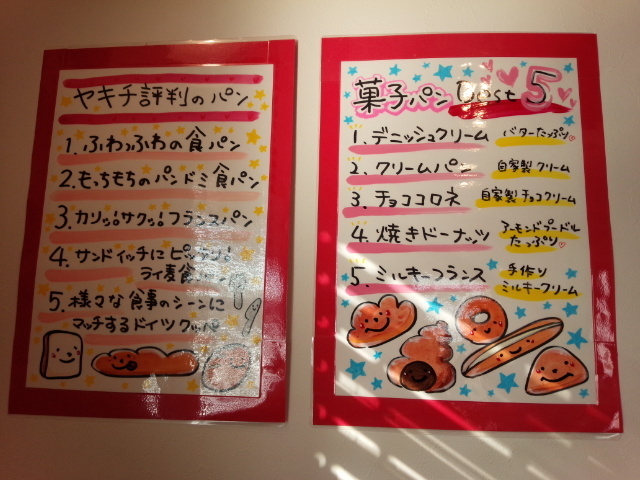 ヤキチ評判のパン
1.ふわっふわの食パン
2.もっちもちのパンドミ食パン
3.カリッ!サクッ!フランスパン
4.サンドイッチにピッタリ!
ライ麦食パン
5.様々な食事のシーンに
マッチするドイツクッパ
菓子パン Best 5
1.デニッシュクリーム バターたっぷり
2.クリームパン 自家製クリーム
3.チョココロネ 自家製チョコクリーム
4.焼きドーナッツ アーモンドプードル
たっぷり
5.ミルキーフランス 手作り
ミルキークリーム